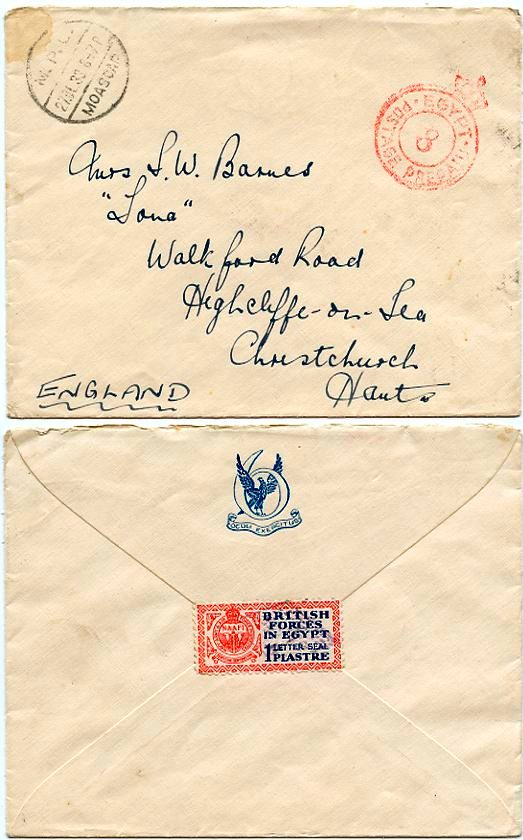 M.P.O.
MOASCAR
EGYPT
POSTAGE PREPAID
8
Mrs S. W. Barnes
"Iona"
Walkford Road
Highcliffe-on-Sea
Christchurch
Hants
ENGLAND
OCULI EXERCITUS
NAAFI
BRITISH
FORCES
IN EGYPT
LETTER SEAL
1 PIASTRE